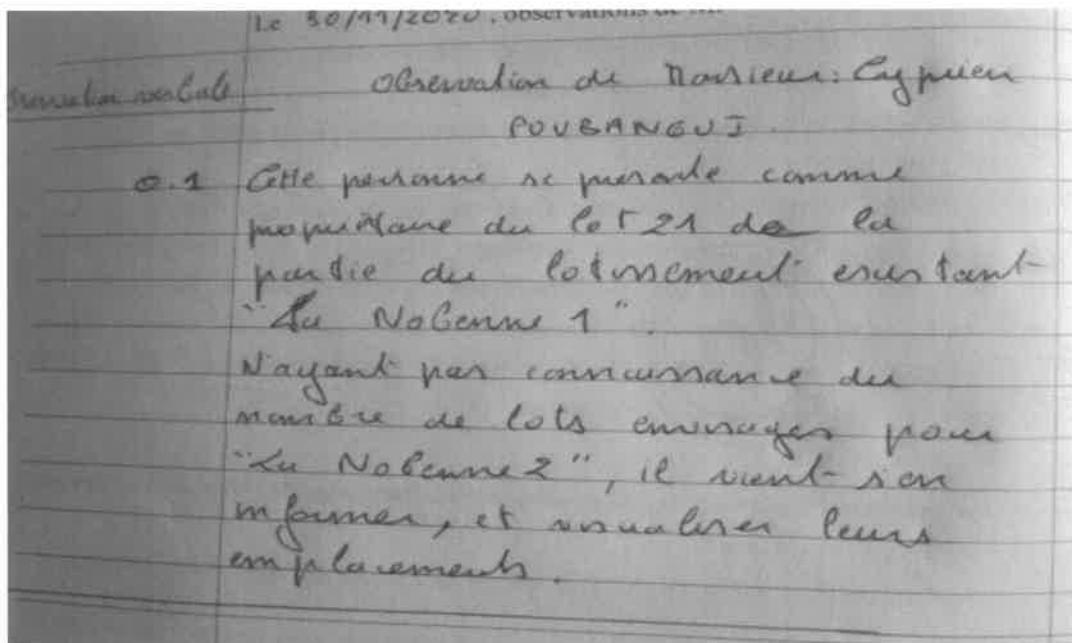 Le 30/11/2020, observations de M.
Observation verbale
Observation de Monsieur: Cyprien
POUBANGUI
O.1 Cette personne se présente comme
propriétaire du lot 21 de la
partie du lotissement existant
"La Nobenne 1".
N'ayant pas connaissance du
nombre de lots envisagés pour
"La Nobenne 2", il vient s'en
informer, et visualiser leurs
emplacements.